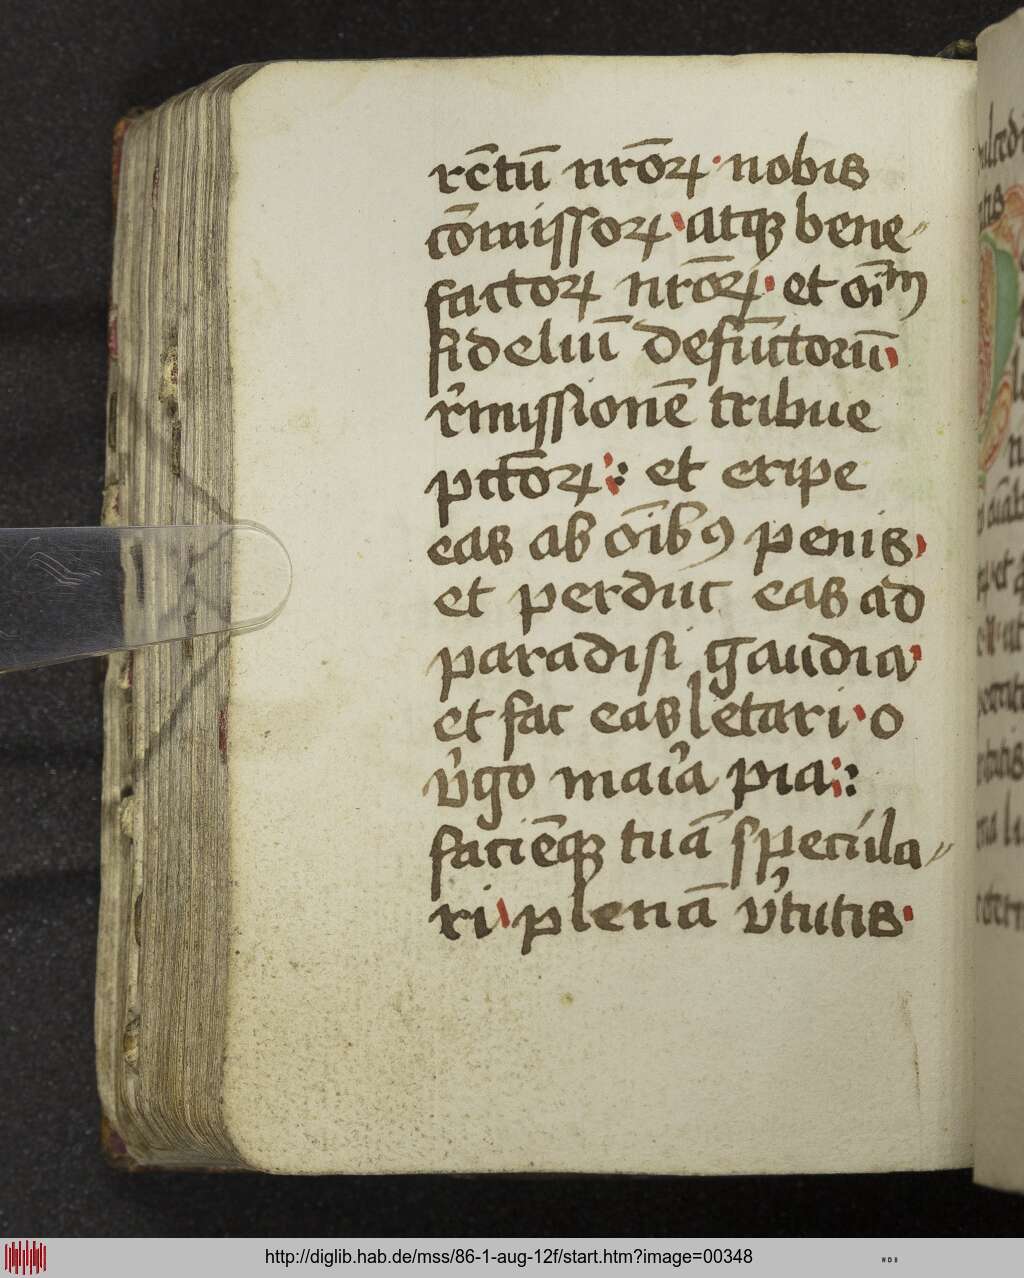 rētū nr̄oꝝ · nobis
cōmissoꝝ atqꝫ bene〃
factoꝝ nr̄oꝝ · et oīm
fideliū defūctorū
r̓missionē tribue
pctōꝝ : et eripe
eas ab oībꝰ penis
et perduc eas ad
paradisi gaudia
et fac eas letari · o
v̓go mat̓ia pia :
faciēqꝫ tuā specula〃
ri plenā v̓tutis ·
http://diglib.hab.de/mss/86-1-aug-12f/start.htm?image=00348